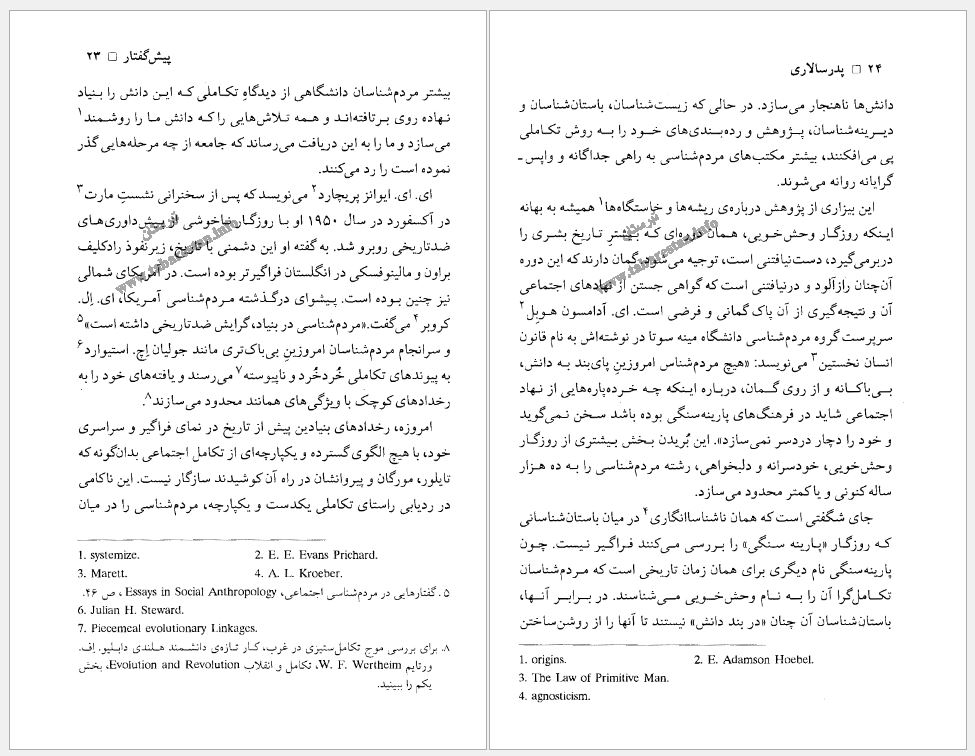 پیش‌گفتار □ ۲۳
بیشتر مردم‌شناسان دانشگاهی از دیدگاهِ تکاملی که این دانش را بنیاد
نهاده روی برتافته‌اند و همه تلاش‌هایی را که دانش ما را روشمند۱
می‌سازد و ما را به این دریافت می‌رساند که جامعه از چه مرحله‌هایی گذر
نموده است را رد می‌کنند.
ای. ای. ایوانز پریچارد۲ می‌نویسد که پس از سخنرانی نشستِ مارت۳
در آکسفورد در سال ۱۹۵۰ او با روزگار ناخوشی از پیش‌داوری‌های
ضدتاریخی روبرو شد. به گفته او این دشمنی با تاریخ، زیرنفوذ رادکلیف
براون و مالینوفسکی در انگلستان فراگیرتر بوده است. در آمریکای شمالی
نیز چنین بوده است. پیشوای درگذشته مردم‌شناسی آمریکا، ای. اِل.
کروبر۴ می‌گفت.«مردم‌شناسی در بنیاد، گرایش ضدتاریخی داشته است»۵
و سرانجام مردم‌شناسان امروزینِ بی‌باک‌تری مانند جولیان اِچ. استیوارد۶
به پیوندهای تکاملی خُردخُرد و ناپیوسته۷ می‌رسند و یافته‌های خود را به
رخدادهای کوچک با ویژگی‌های همانند محدود می‌سازند۸.
امروزه، رخدادهای بنیادین پیش از تاریخ در نمای فراگیر و سراسری
خود، با هیچ الگوی گسترده و یکپارچه‌ای از تکامل اجتماعی بدان‌گونه که
تایلور، مورگان و پیروانشان در راه آن کوشیدند سازگار نیست. این ناکامی
در ردیابی راستای تکاملی یکدست و یکپارچه، مردم‌شناسی را در میان
1. systemize. 2. E. E. Evans Prichard.
3. Marett. 4. A. L. Kroeber.
۵. گفتارهایی در مردم‌شناسی اجتماعی، Essays in Social Anthropology ، ص ۴۶.
6. Julian H. Steward.
7. Piecemeal evolutionary Linkages.
۸. برای بررسی موج تکامل‌ستیزی در غرب، کار تازه‌ی دانشمند هلندی دابلیو. اِف.
ورتایم W. F. Wertheim، تکامل و انقلاب Evolution and Revolution، بخش
یکم را ببینید.
www.tabarestan.info
۲۴ □ پدرسالاری
دانش‌ها ناهنجار می‌سازد. در حالی که زیست‌شناسان، باستان‌شناسان و
دیرینه‌شناسان، پژوهش و رده‌بندی‌های خود را به روش تکاملی
پی می‌افکنند، بیشتر مکتب‌های مردم‌شناسی به راهی جداگانه و واپس ـ
گرایانه روانه می‌شوند.
این بیزاری از پژوهش درباره‌ی ریشه‌ها و خاستگاه‌ها۱ همیشه به بهانه
اینکه روزگار وحش‌خویی، همان دوره‌ای که بیشترِ تاریخ بشری را
دربرمی‌گیرد، دست‌نیافتنی است، توجیه می‌شود. گمان دارند که این دوره
آن‌چنان رازآلود و درنیافتنی است که گواهی جستن از نهادهای اجتماعی
آن و نتیجه‌گیری از آن پاک گمانی و فرضی است. ای. آدامسون هوبل۲
سرپرست گروه مردم‌شناسی دانشگاه مینه سوتا در نوشته‌اش به نام قانون
انسان نخستین۳ می‌نویسد: «هیچ مردم‌شناس امروزینِ پای‌بند به دانش،
بی‌باکانه و از روی گمان، درباره اینکه چه خرده‌پاره‌هایی از نهاد
اجتماعی شاید در فرهنگ‌های پارینه‌سنگی بوده باشد سخن نمی‌گوید
و خود را دچار دردسر نمی‌سازد». این بُریدن بخش بیشتری از روزگار
وحش‌خویی، خودسرانه و دلبخواهی، رشته مردم‌شناسی را به ده هزار
ساله کنونی و یا کمتر محدود می‌سازد.
جای شگفتی است که همان ناشناساانگاری۴ در میان باستان‌شناسانی
که روزگار «پارینه سنگی» را بررسی می‌کنند فراگیر نیست. چون
پارینه‌سنگی نام دیگری برای همان زمان تاریخی است که مردم‌شناسان
تکامل‌گرا آن را به نام وحش‌خویی می‌شناسند. در برابر آنها،
باستان‌شناسان آن چنان «در بند دانش» نیستند تا آنها را از روشن‌ساختن
1. origins. 2. E. Adamson Hoebel.
3. The Law of Primitive Man.
4. agnosticism.
www.tabarestan.info